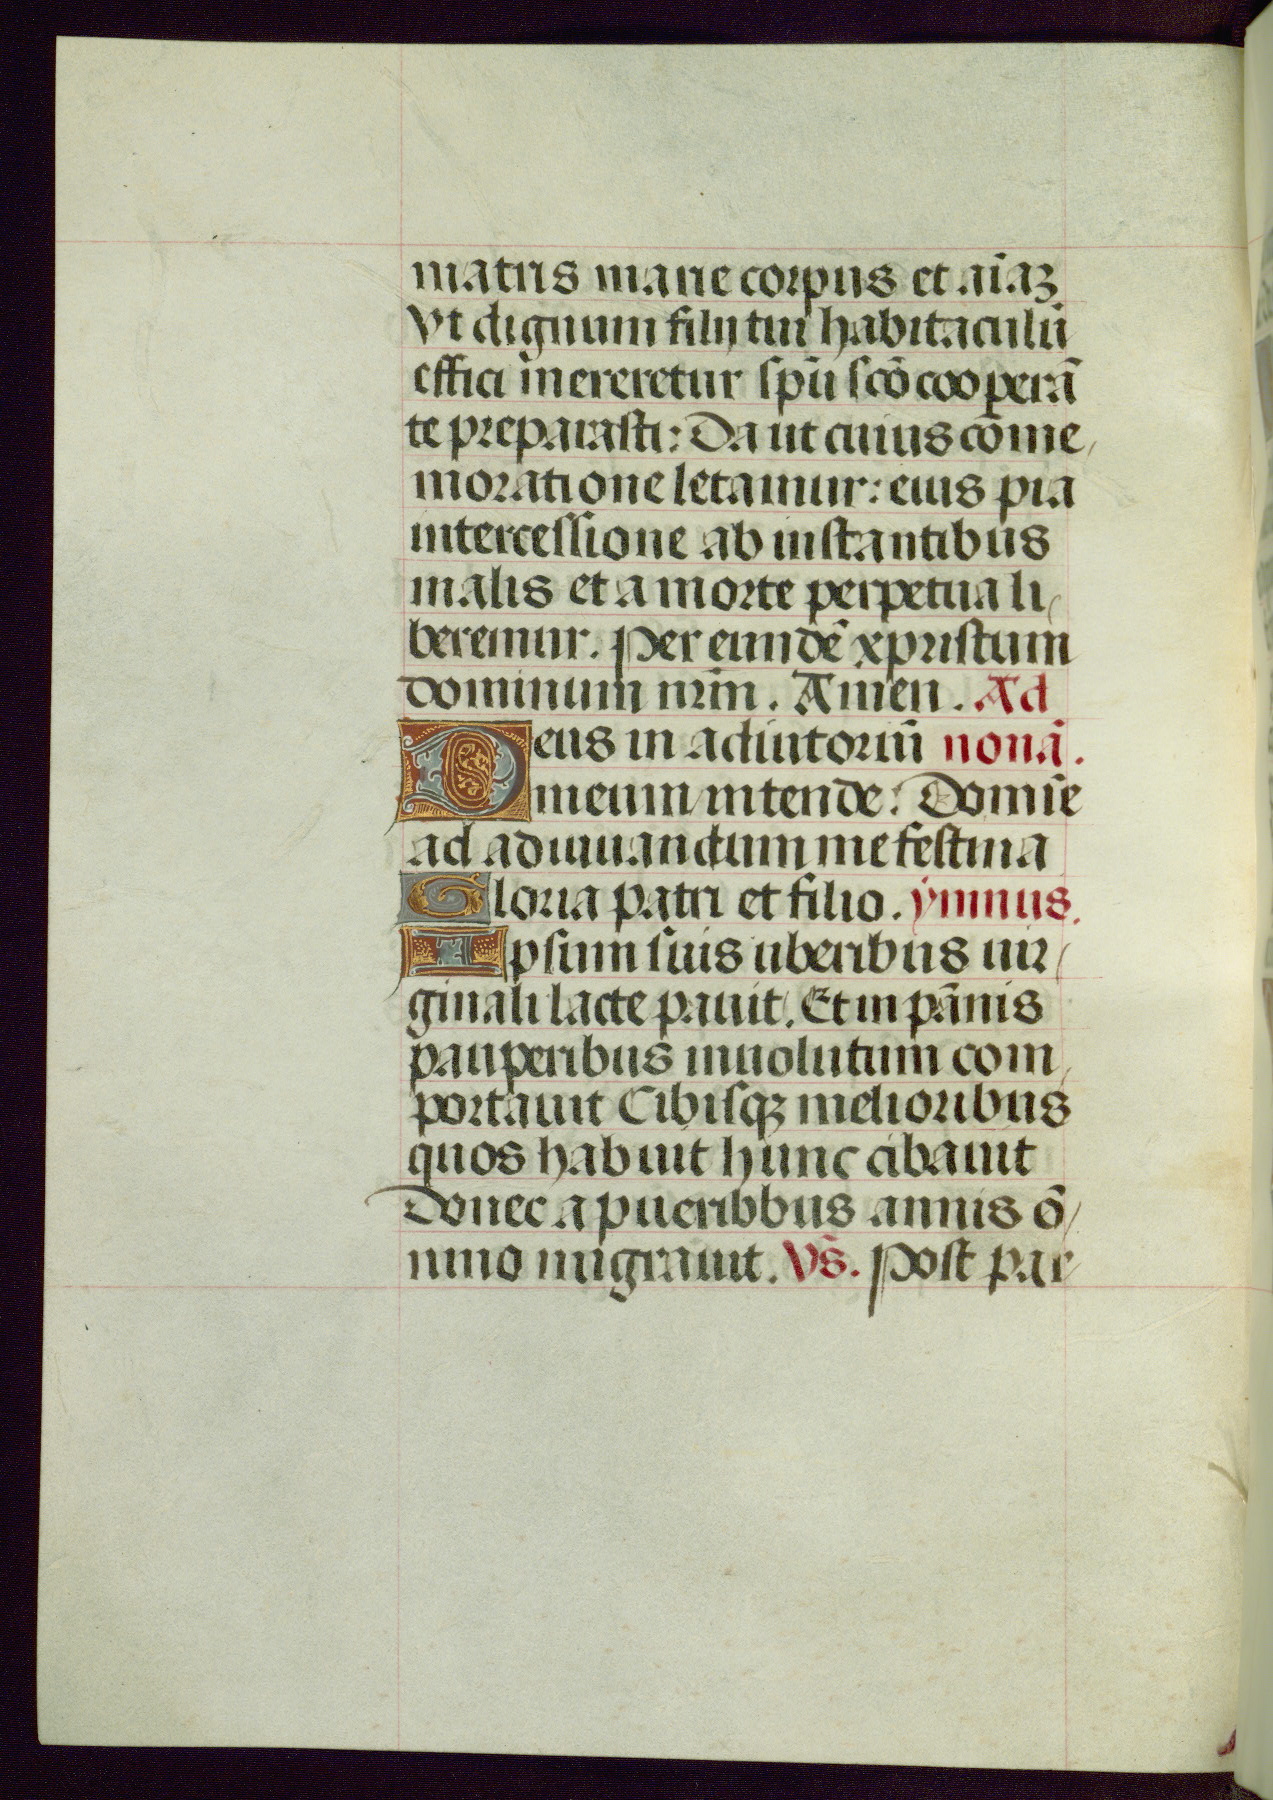 matris marie corpus et aīaꝫ
Vt dignum filii tui habitaculū
effici mereretur spū scō cooperā
te preparasti: Da ut cuius cōme/
moratione letamur: eius pia
intercessione ab instantibus
malis et a morte perpetua li/
beremur. Per eundē xpristum
dominum nr̄m. Amen. Ad
Deus in adiutoriū nonā.
meum intende: Domīe
ad adiuuandum me festina
Gloria patri et filio. ymnus.
Ipsum suis uberibus uir/
ginali lacte pauit. Et in pānis
pauperibus inuolutum com/
portauit Cibisqꝫ melioribus
quos habuit hunc cibauit
Donec a pueribbus annis ō/
nino migrauit. Vs̄. Post par